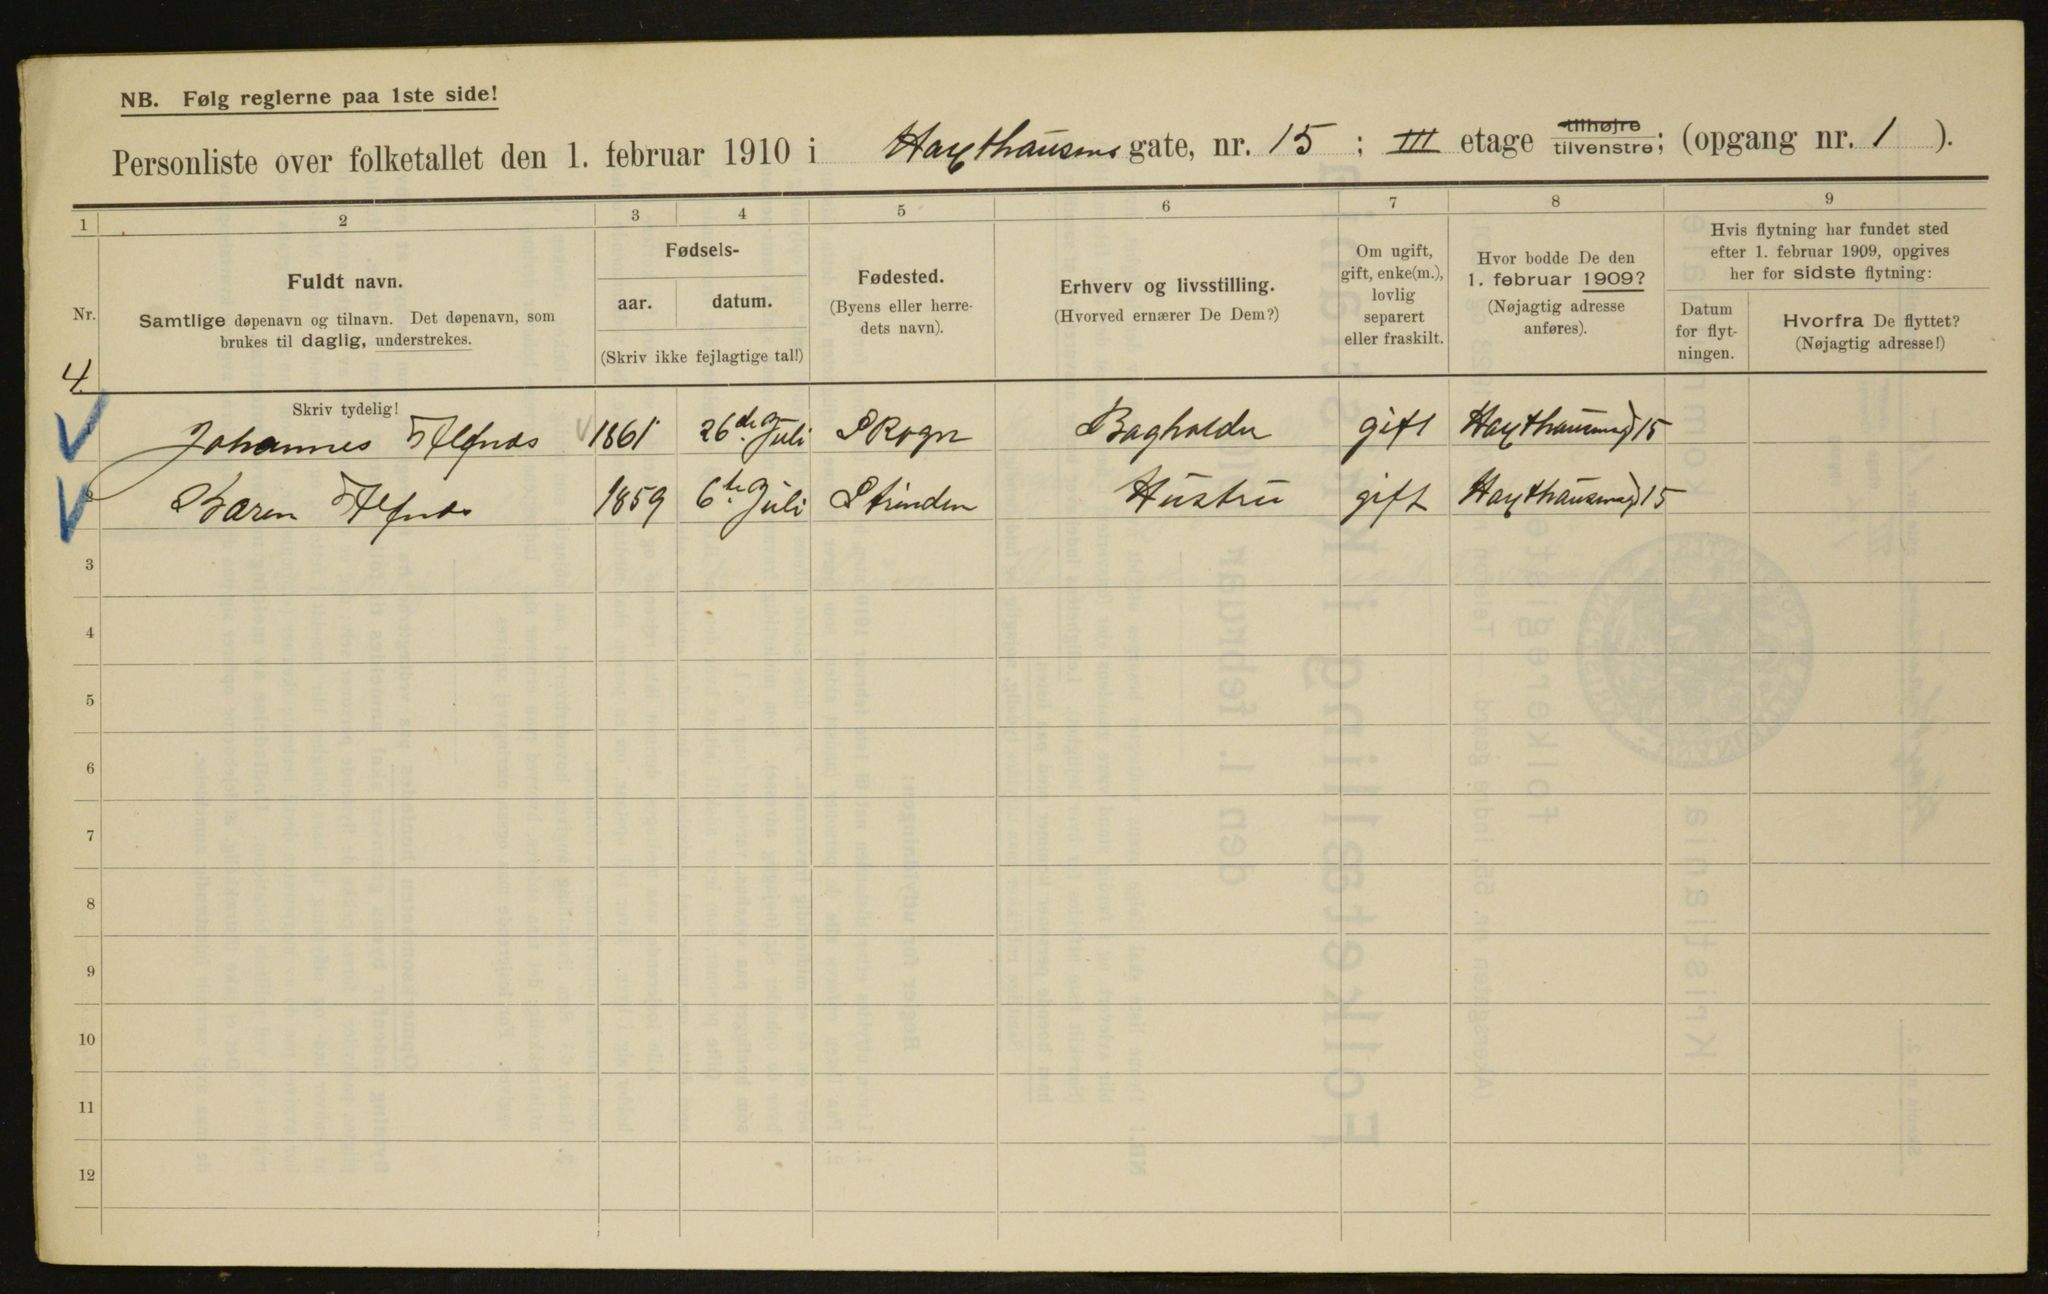 NB. Følg reglerne paa 1ste side!
Personliste over folketallet den 1. februar 1910 i Haxthausens gate, nr. 15 ; III etage tilhøjre tilvenstre; (opgang nr. 1 ).
1 2 3 4 5 6 7 8 9
Nr.
Fuldt navn.
Samtlige døpenavn og tilnavn. Det døpenavn, som
brukes til daglig, understrekes.
Fødsels-
aar. datum.
(Skriv ikke fejlagtige tal!)
Fødested.
(Byens eller herre-
dets navn).
Erhverv og livsstilling.
(Hvorved ernærer De Dem?)
Om ugift,
gift, enke(m.),
lovlig
separert
eller fraskilt.
Hvor bodde De den
1. februar 1909?
(Nøjagtig adresse
anføres).
Hvis flytning har fundet sted
efter 1. februar 1909, opgives
her for sidste flytning:
Datum
for flyt-
ningen.
Hvorfra De flyttet?
(Nøjagtig adresse!)
4.
Skriv tydelig!
Johannes 1861 26de Juli Bagholder gift Haxthausensgd 15
Karen 1859 6te Juli Strinden Hustru gift Haxthausensgd 15
3
4
5
6
7
8
9
10
11
12